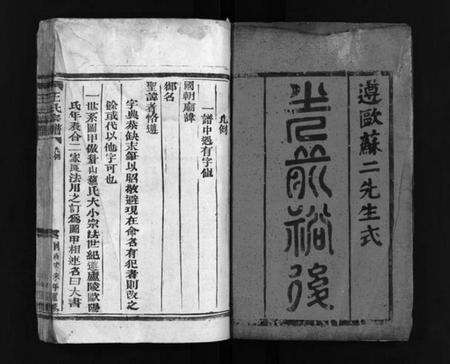 遵歐蘇二先生式
光前裕後
凡例
一譜中遇有字僞
國朝廟諱
御名
聖諱者恪遵
字典恭缺末筆以昭敬避現在命名有犯者則改之
餘或代以他字可也
一世系圖甲倣眉山蘇氏大小宗法世紀遵廬陵歐陽
氏年表合二家良法用之訂為圖甲相連名曰大書
王氏宗譜 凡例